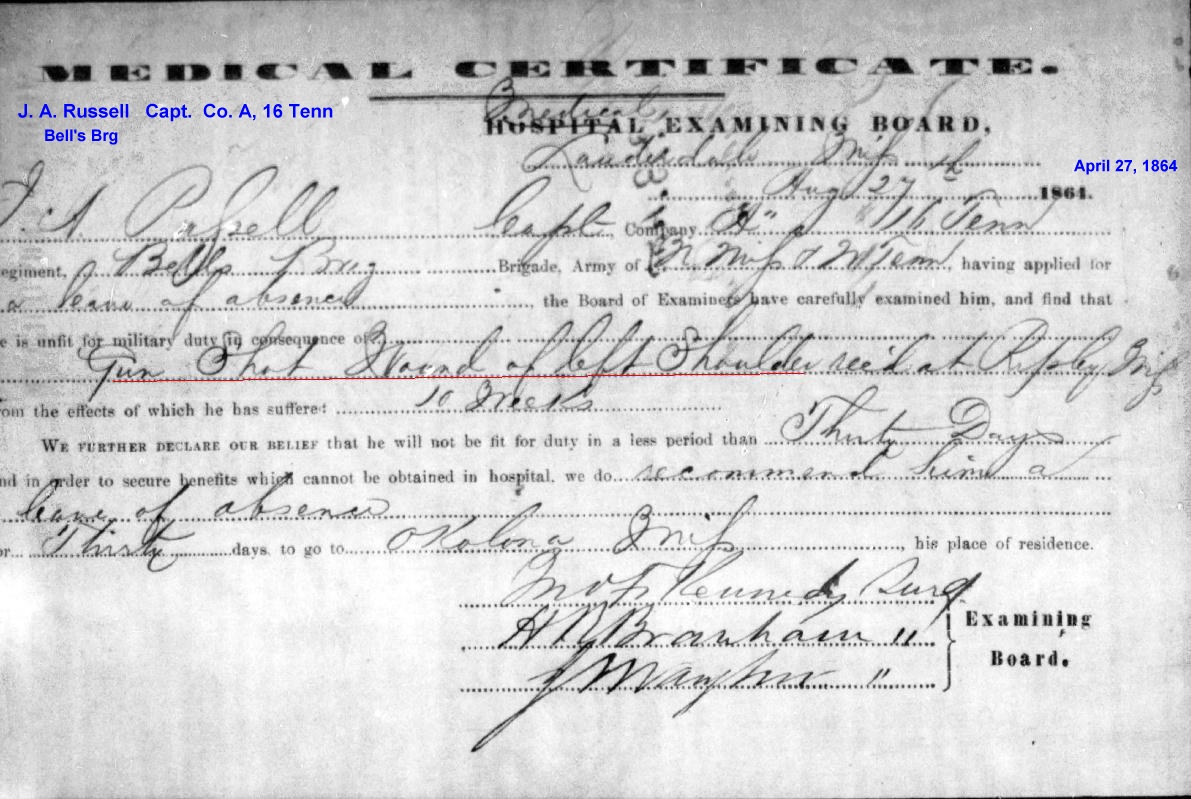 MEDICAL CERTIFICATE.
J. A. Russell Capt. Co. A, 16 Tenn
Bell's Brg
Medical
HOSPITAL EXAMINING BOARD,
Lauderdale Miss
April 27, 1864
Aug 27th 1864.
J. A. Russell Capt. Company "A" 16 Tenn
egiment, of Bells Brig Brigade, Army of N Miss & W Tenn, having applied for
a leave of absence, the Board of Examiners have carefully examined him, and find that
e is unfit for military duty in consequence of
Gun Shot Wound of left Shoulder rec'd at Ripley Miss
rom the effects of which he has suffered 10 Weeks
WE FURTHER DECLARE OUR BELIEF that he will not be fit for duty in a less period than Thirty Days
nd in order to secure benefits which cannot be obtained in hospital, we do recommend him a
leave of absence
or Thirty days, to go to Okolona Miss, his place of residence.
Kennedy Surg
Branham "
"
Examining
Board.